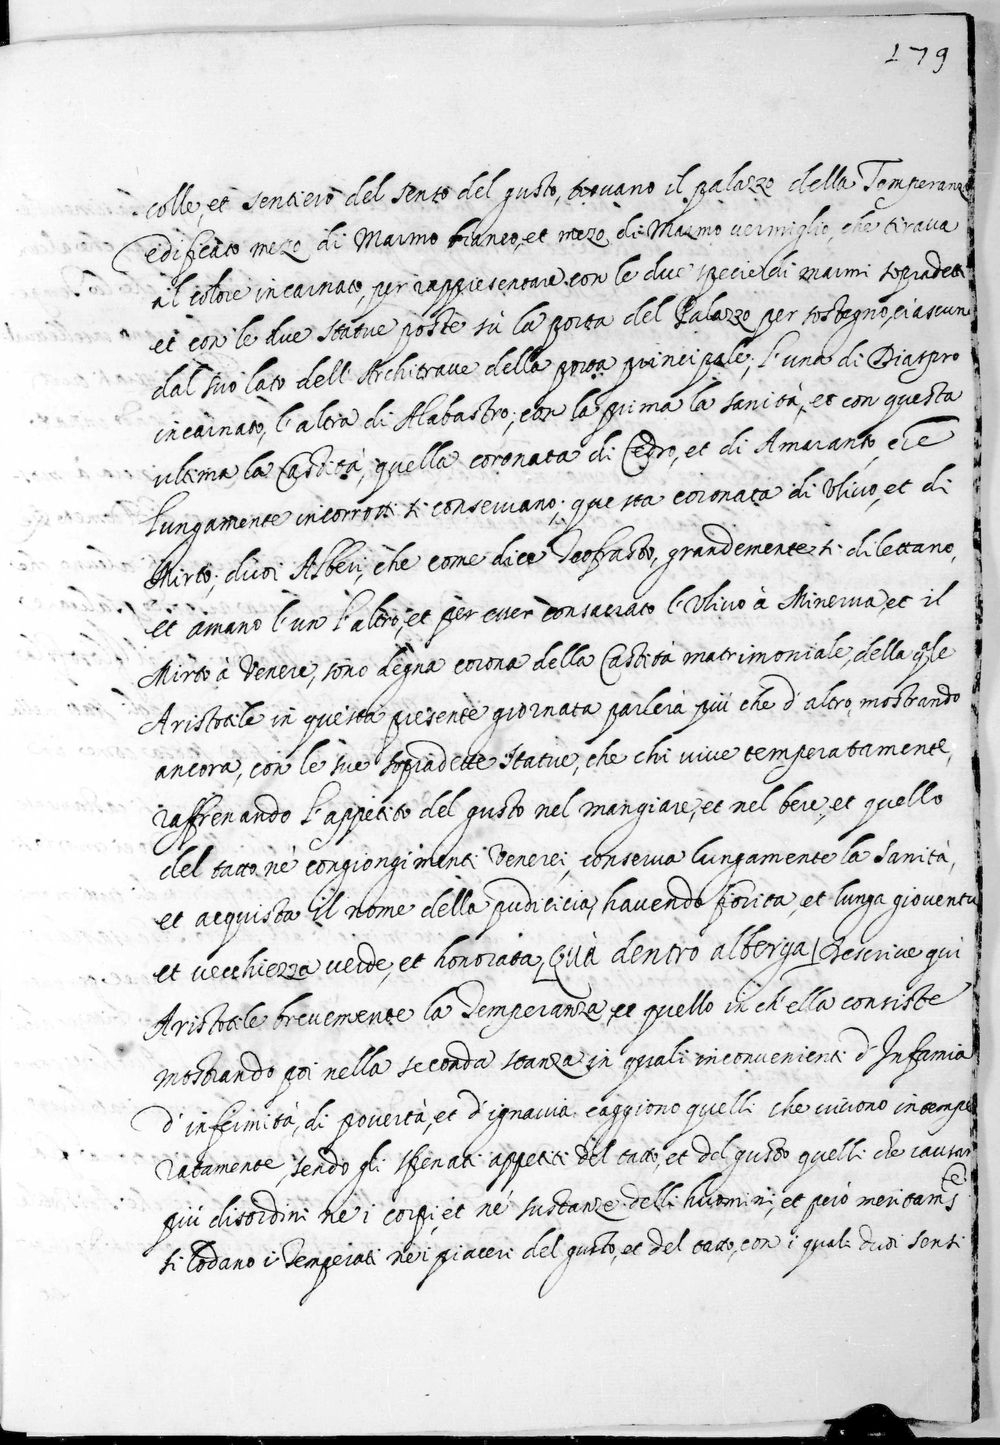 179
colle, et sentiero del senso del gusto, trovano il palazzo della Temperanza
edificato mezo di Marmo bianco, et mezo di Marmo vermiglio, che tirava
al colore incarnato, per rappresentare con le due specie di marmi sopradetti
et con le due statue poste sù la porta del Palazzo per sostegno, ciascuna
dal suo lato dell'Architrave della porta principale; l'una di Diaspro
incarnato, l'altra di Alabastro; con la prima la sanità, et con questa
ultima la Castità, quella coronata di Cedro, et di Amaranto, che
lungamente incorrotti si conservano; questa coronata di Ulivo, et di
Mirto; duoi Alberi, che come dice Teofrasto, grandemente si dilettano,
et amano l'un l'altro, et per esser consacrato l'Ulivo à Minerva, et il
Mirto à Venere, sono degna corona della Castità matrimoniale, della qle
Aristotile in questa presente giornata parlerà più che d'altro, mostrando
ancora, con le sue sopradette statue, che chi vive temperatamente,
raffrenando l'appetito del gusto nel mangiare, et nel bere, et quello
del tatto ne' congiongimenti Venerei, conserva lungamente la sanità,
et acquista il nome della pudicicia, havendo fiorita, et lunga gioventu
et vecchiezza verde, et honorata, Quà dentro alberga] Descrive qui
Aristotile brevemente la Temperanza, et quello in ch'ella consiste
mostrando poi nella seconda stanza in quali inconvenienti d'Infamia
d'infirmità, di povertà, et d'ignavia caggiono quelli che vivono intempe
ratamente, sendo gli sfrenati appetiti del tatto, et del gusto quelli che causano
più disordini ne i corpi, et ne' sustanze delli huomini, et però meritams.e
si lodano i Temperati nei piaceri del gusto, et del tatto, con i quali duoi sensi